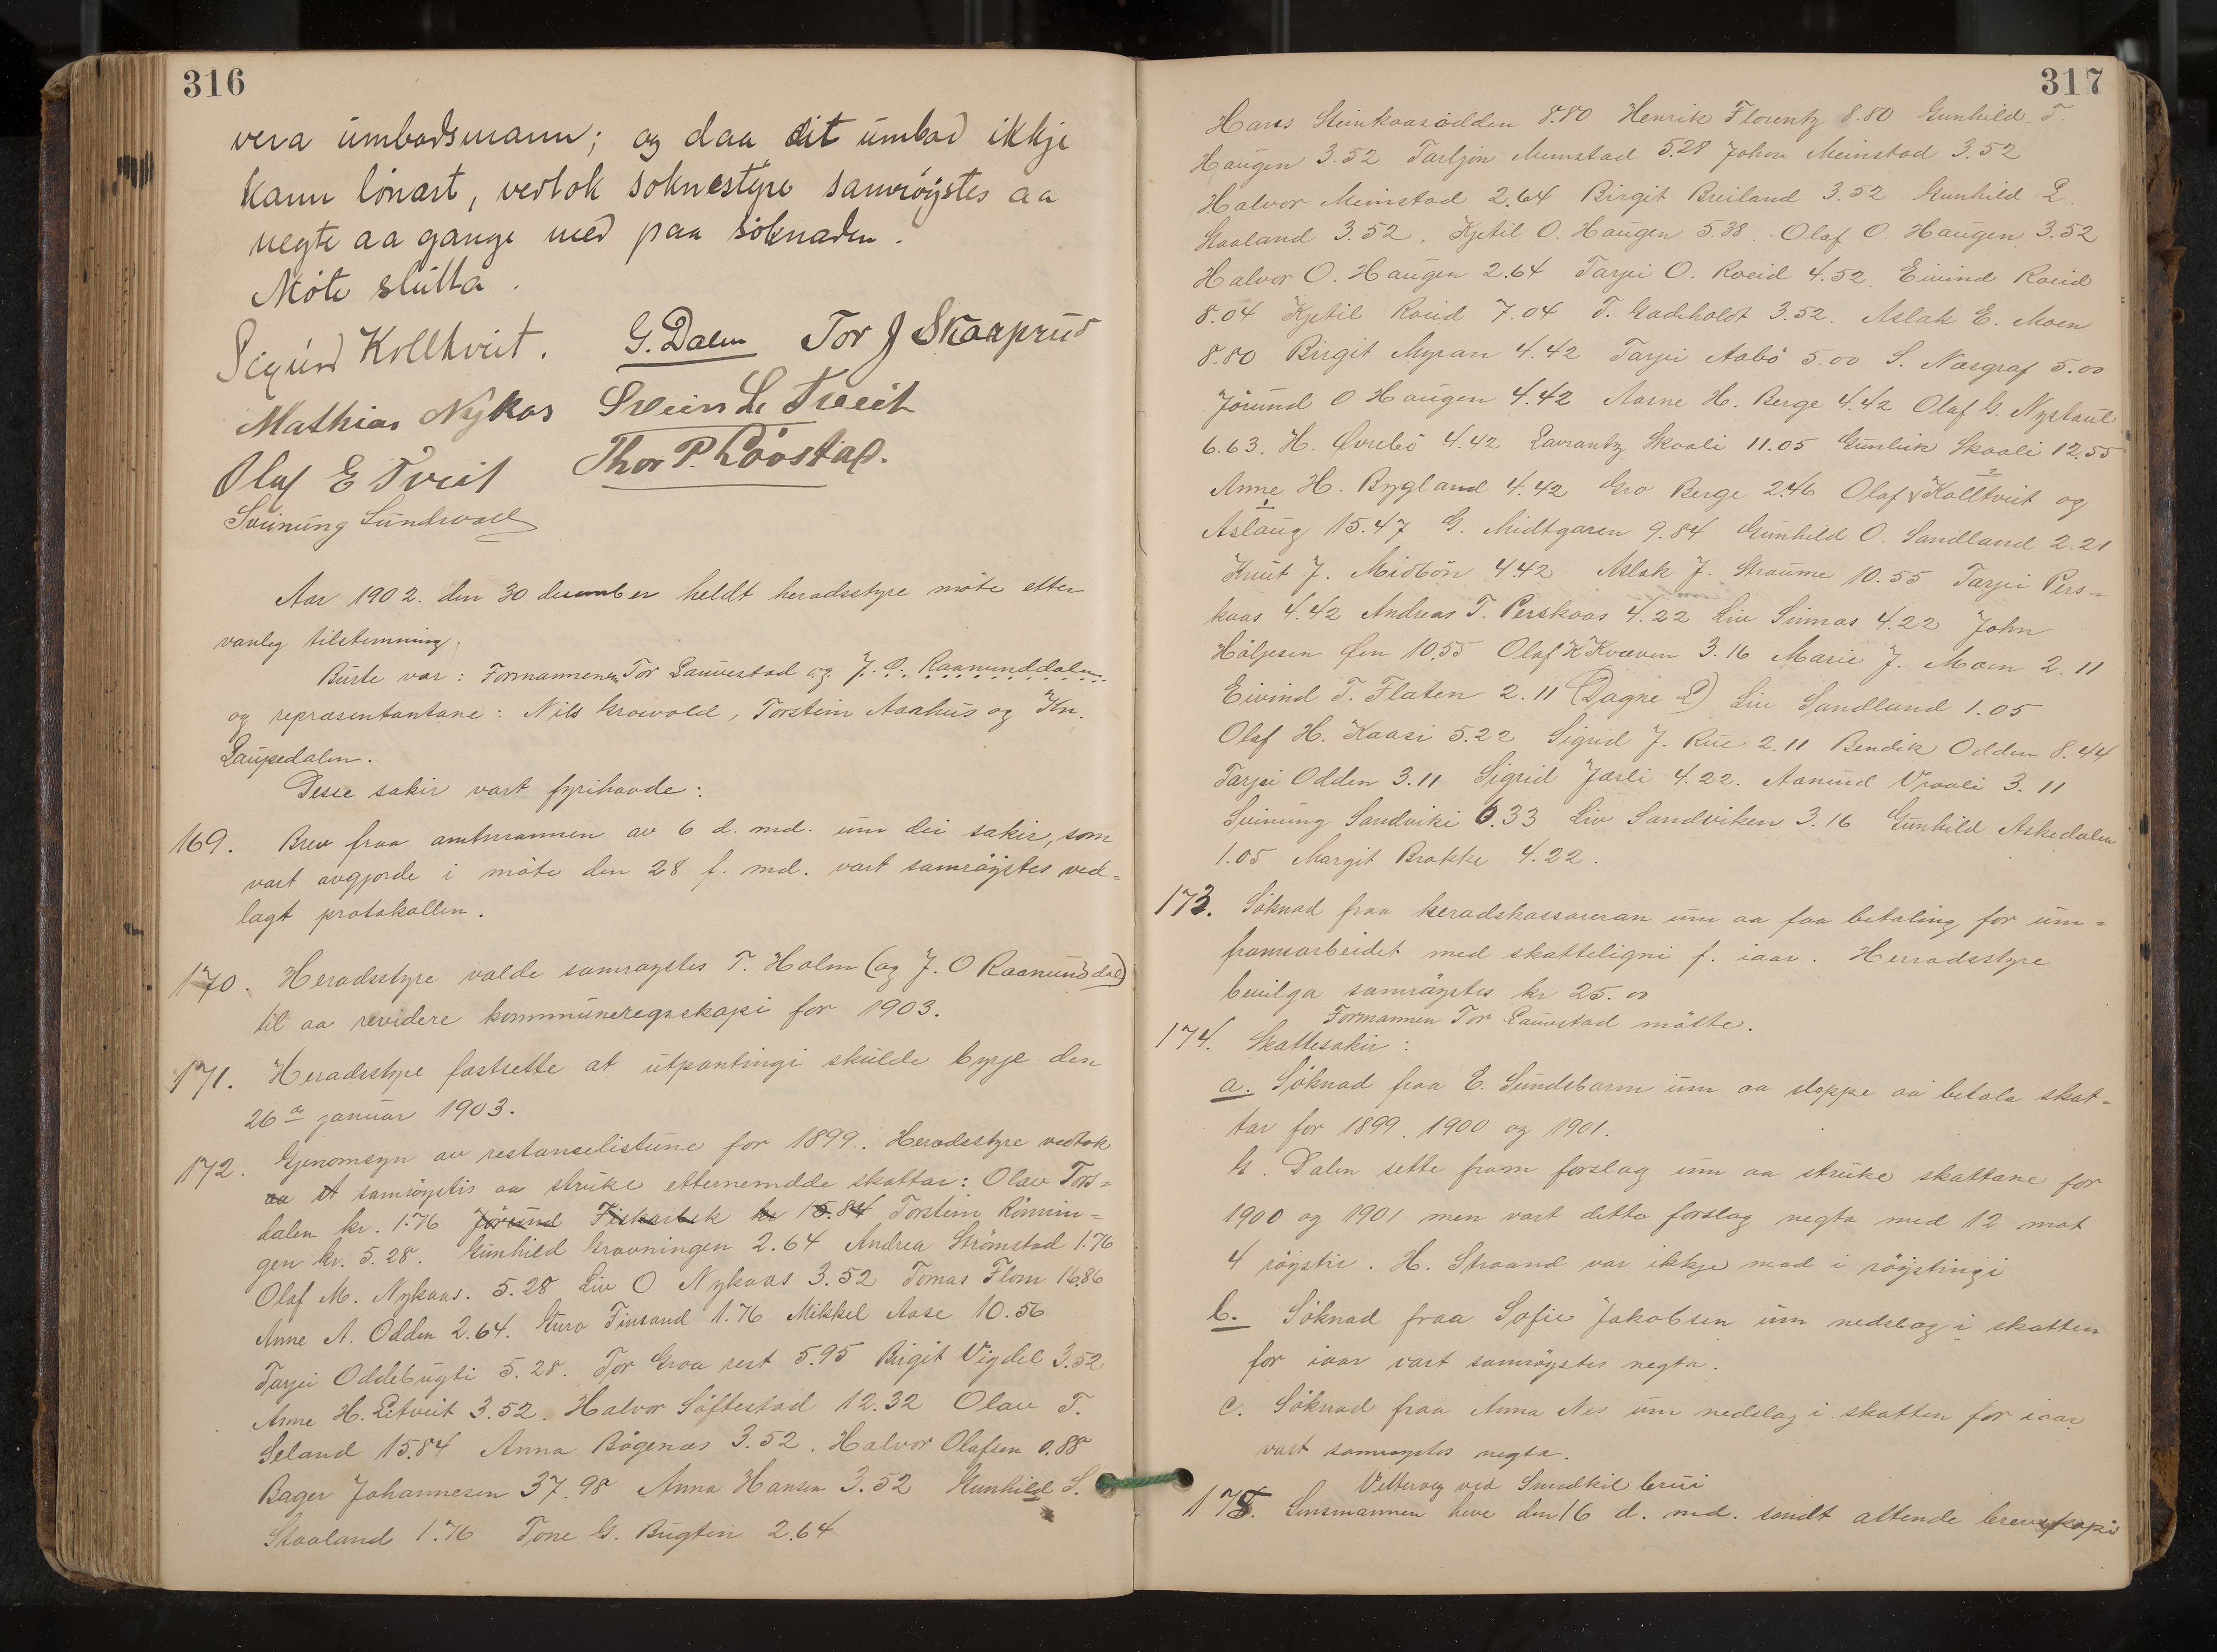 316
vera umbodsmann; og daa dit umbod ikkje
kann lönast, vedtok soknestyre samröystes aa
negte aa gange med paa söknaden.
Möte slutta.
Sigurd Kolltveit. G. Dalen Tor J Skaaprud
Mathias Nykos Svein L. Tveit
Olaf E Tveit Thor P. Lööstad.
Sveinung Sundvoll
Aar 1902. den 30 december heldt heradsstyre möte etter
vanleg tilstemning.
Burte var: Formannen Tor Lauvestad og J. O. Raamunddalen
og repræsentantane: Nils Grovold, Torstein Aarhus og Kn.
Laupedalen.
Desse sakir vart fyrihavde:
169. Brev fraa amtmannen av 6 d. md. um dei sakir, som
vart avgjorde i möte den 28 f. md. vart samröystes ved=
lagt protokollen.
170. Heradsstyre valde samröystes T. Holm (og J. O Raamunddal)
til aa revidere kommuneregnskapi for 1903.
171. Heradsstyre fastsette at utpantingi skulde byrje den
26de januar 1903.
172. Gjenomsyn av restanselistune for 1899. Heradsstyre vedtok
aa st samröystis aa struke etternemdde skattar: Olav Tors=
dalen kr. 1.76 Jörund Fiskarbek kr 15.84 Torstein Rönnin=
gen kr. 5.28. Gunhild Gravningen 2.64 Andrea Strömstad 1.76
Olaf M. Nykaas. 5.28 Liv O Nykaas 3.52 Tomas Flom 16.86
Anne A. Odden 2.64. Guro Tinsand 1.76 Mikkel Aase 10.56
Tarjei Oddebugti 5.28. Tor Graa rest 5.95 Birgit Vigdel 3.52
Anne H. Letveit 3.52. Halvor Söftestad 12.32 Olav T.
Seland 15.84 Anna Bögenæs 3.52. Halvor Olafsen 0.88
Bager Johannesen 37.98 Anna Hansen 3.52 Gunhild S.
Staaland 1.76 Tone G. Bugten 2.64
317
Hans Steinkaasodden 8.80 Henrik Florentz 8.80 Gunhild T.
Haugen 3.52 Tarljon Meinstad 5.28 Johan Meinstad 3.52
Halvor Meinstad 2.64 Birgit Breiland 3.52 Gunhild L.
Staaland 3.52. Kjetil O. Haugen 5.38. Olaf O. Haugen 3.52
Halvor O. Haugen 2.64 Tarjei O. Roeid 4.52. Eivind Roeid
8.04 Kjetil Roeid 7.04 T. Gadeholdt 3.52. Aslak E. Moen
8.80 Birgit Myran 4.42 Tarjei Aabö 5.00 S. Næsgraf 5.00
Jörund O Haugen 4.42 Aasne H. Berge 4.42 Olaf G. Nystaul
6.63. H. Øvrebö 4.42 Lavrantz Skaali 11.05 Gunleik Skaali 12.55
Anne H. Bygland 4.42 Gro Berge 2.46 Olaf Kolltveit og
Aslaug 15.47 G. Midtgaren 9.84 Gunhild O. Sandland 2.21
Knut J. Midbön 4.42 Aslak J. Straume 10.55 Tarjei Pers=
kaas 4.42 Andreas T. Perskaas 4.22 Liv Sinnæs 4.22 John
Höljesen Øen 10.55 Olaf K Kvæven 3.16 Marie J. Moen 2.11
Eivind T. Flaten 2.11 (Dagne L) Liv Sandland 1.05
Olaf H. Kaasi 5.22 Sigrid J. Rue 2.11 Bendik Odden 8.44
Tarjei Odden 3.11 Sigrid Jærli 4.22. Aanund Vraali 3.11
Sveinung Sandviki 6.33 Liv Sandviken 3.16 Gunhild Askedalen
1.05 Margit Brokke 4.22.
173. Söknad fraa heradskassareran um aa faa betaling for um=
framsarbeidet med skatteligni f. iaar. Herradsstyre
bevilga samröystes kr 25.00
Formannen Tor Lauvestad mötte.
174. Skattesakir:
a. Söknad fraa E. Sundsbarm um aa sleppe aa betala skat=
tar for 1899. 1900 og 1901.
G. Dalen sette fram forslag um aa struke skattane for
1900 og 1901 men vart dette forslag negta med 12 mot
4 röystir. H. Straand var ikkje med i röystingi
b. Söknad fraa Sofie Jakobsen um nedslag i skatten
for iaar vart samröystes negta.
c. Söknad fraa Anna Nes um nedslag i skatten for iaar
vart samröystes negta.
Vetterveg ved Smedkil brui
175. Lensmannen heve den 16 d. md. sendt attende brevskapi